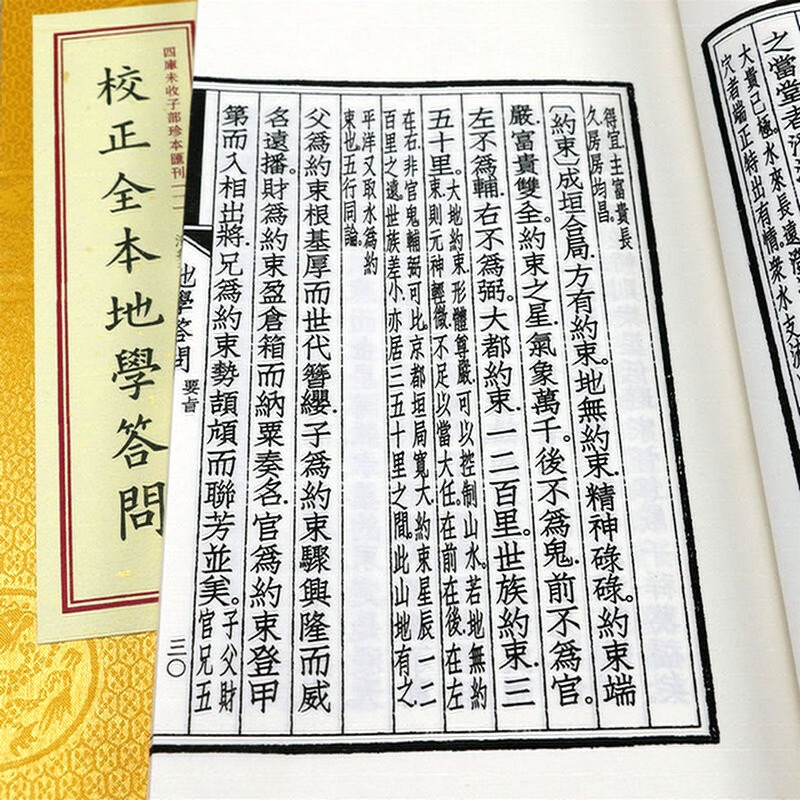 四庫未收子部珍本匯刊
校正全本地學答問
大貴已極。水來長遠
穴者端正特出有情。眾水支
得宜.主富貴長
久.房房均昌。
〔約束〕成垣合局.方有約束。地無約束.精神碌碌。約束端
嚴.富貴雙全。約束之星.氣象萬千。後不為鬼.前不為官。
左不為輔.右不為弼。大都約束.一二百里。世族約束.三
五十里。
大地約束.形體尊嚴.可以控制山水。若地無約
束.則元神輕微.不足以當大任。在前在後.在左
在右.非官鬼輔弼可比.京都垣局寬大.約束星辰.一二
百里之遠。世族差小.亦居三五十里之間。此山地有之.
平洋又取水為約
束也.五行同論。
父為約束根基厚而世代簪纓.子為約束驟興隆而威
名遠播。財為約束盈倉箱而納粟奏名.官為約束登甲
第而入相出將.兄為約束勢頡頏而聯芳並美。
子父財
官兄五
地學答問
要旨
三〇